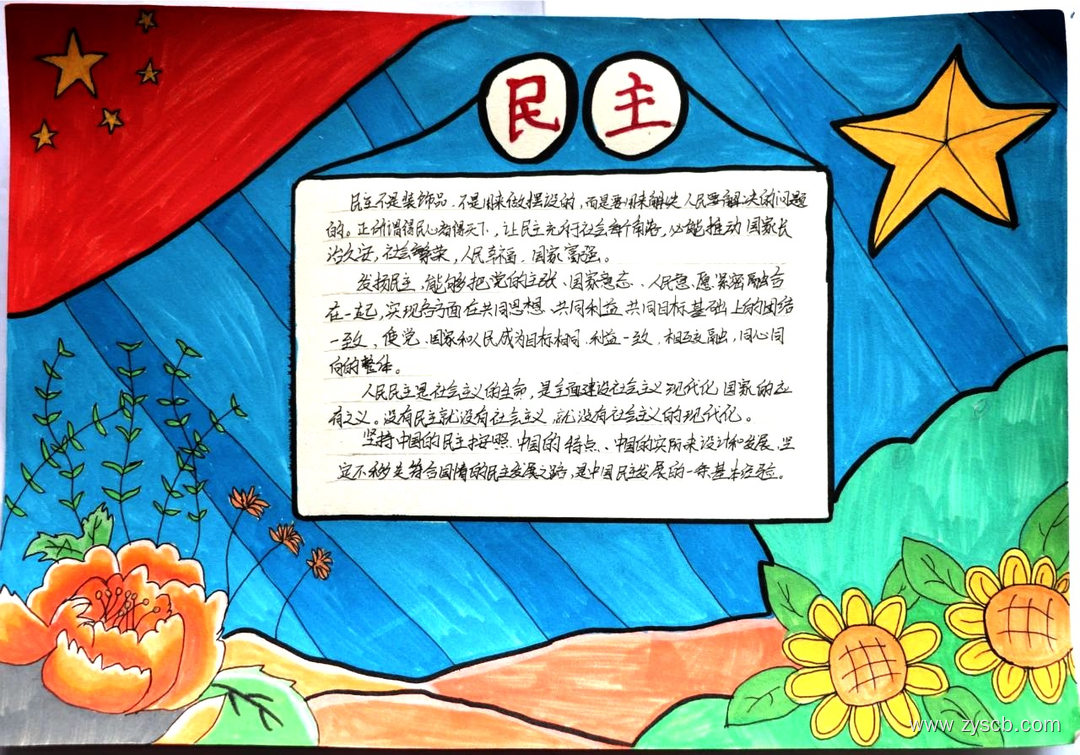 民主
民主不是装饰品，不是用来做摆设的，而是要用来解决人民要解决的问题
的。正所谓得民心者得天下，让民主充斥社会每个角落，必能推动国家长
治久安，社会繁荣，人民幸福，国家富强。
发扬民主，能够把党的主张、国家意志、人民意愿紧密融合
在一起，实现各方面在共同思想、共同利益、共同目标基础上的团结
一致，使党、国家和人民成为目标相同、利益一致、相互交融，同心同
向的整体。
人民民主是社会主义的生命，是全面建设社会主义现代化国家的应
有之义。没有民主就没有社会主义，就没有社会主义的现代化。
坚持中国的民主按照中国的特点、中国的实际来设计和发展，坚
定不移走符合国情的民主发展之路，是中国民主发展的一条基本经验。
www.zyscb.com